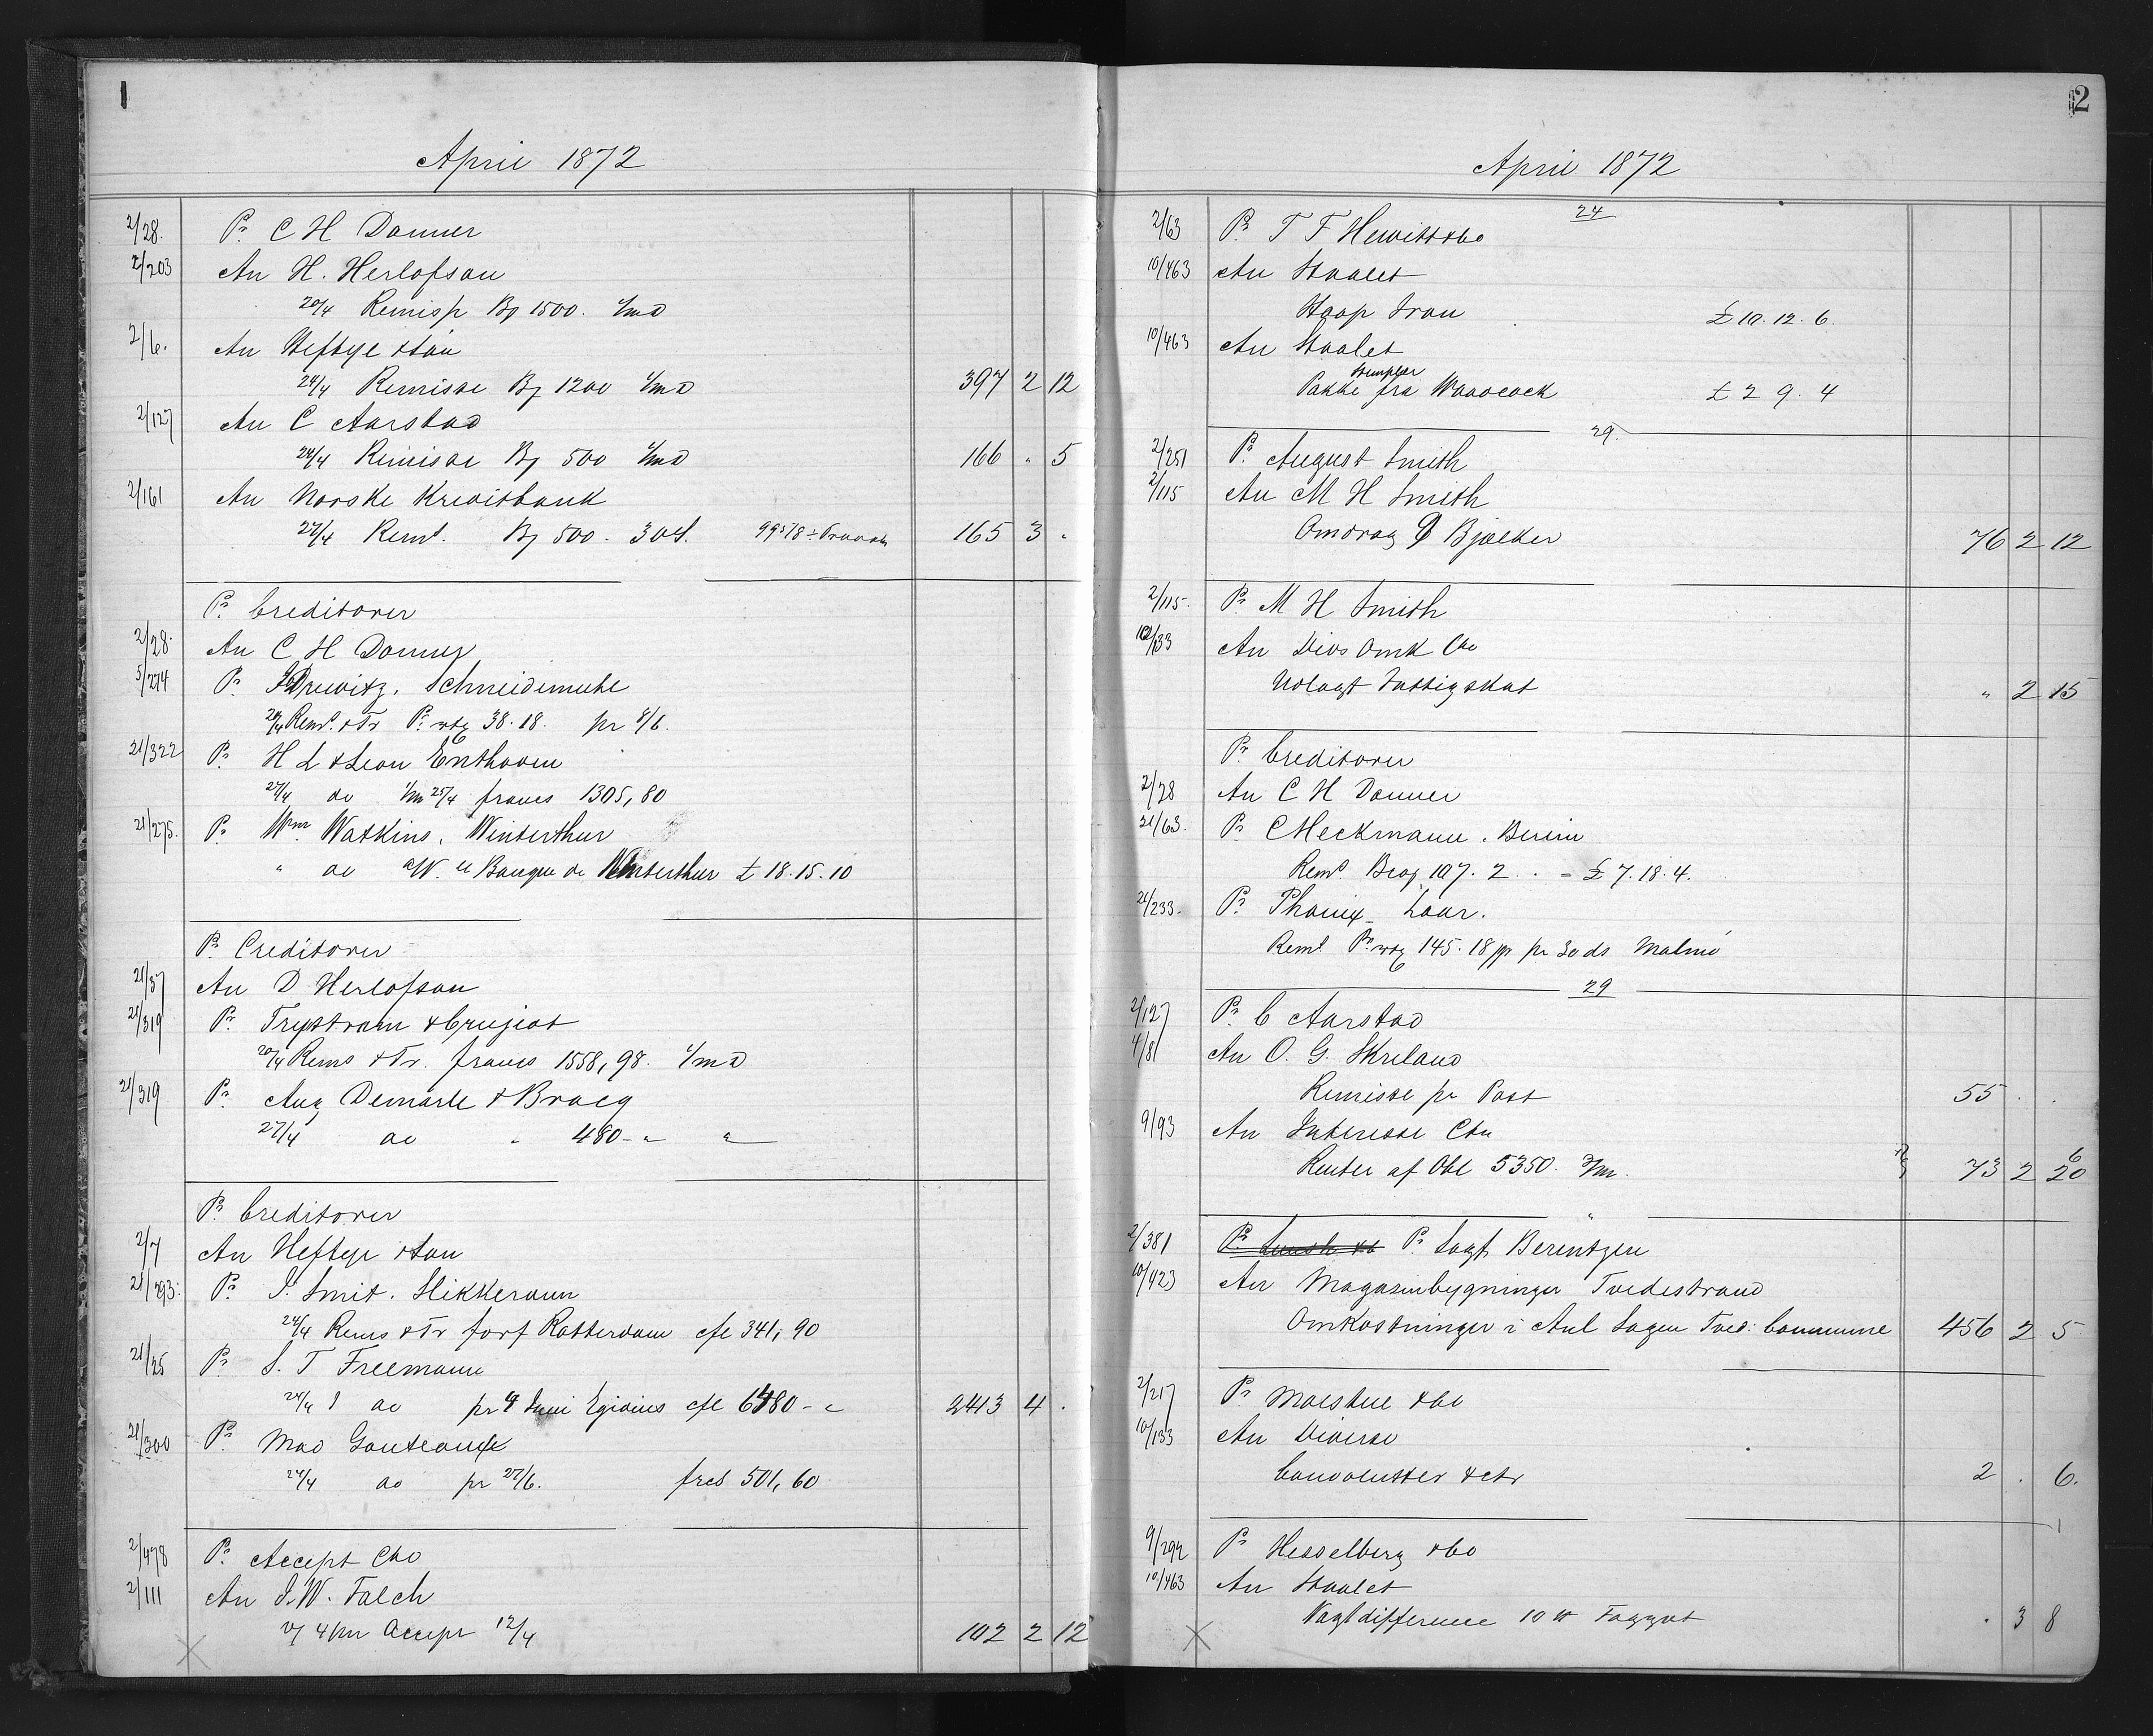 1
April 1872
2/28. Pr C H Donner
2/203 An H. Herlofson
20/4 Remisse Bg 1500. 1/md
2/6. An Heftye & Søn
24/4 Remisse Bg 1200 1/md 397 2 12
2/127 An C Aarstad
24/4 Remisse Bg 500 1/md 166 " 5
2/161 An Norske Kreditbank
27/4 Rems. Bg 500. 165 3 "
Pr Creditorer
2/28. An C H Donner
5/274 Pr Drewitz. Schneidemuhl
Rems. & Tr Pr 38.18. pr 8/6.
21/322 Pr H L & Leon Enthoven
27/4 do 25/4 francs 1305,80
21/275. Pr Wm Watkins, Winterthur
" do Banque de Winterthur £ 18.15.10
Pr Creditorer
21/37 An D Herlofson
21/319 Pr Trystram & Crujeot
20/4 Rems & Tr. francs 1558,98. 1/md
21/319 Pr Aug Demarle &
27/4 do " 480 - "
Pr Creditorer
2/7 An Heftye & Søn
21/293. Pr J. Smit. Slikkerveer
24/4 Rems & Tr Rotterdam cfl 341,90
21/25 Pr S. T Freemann
24/4 do pr 4 Juni cfl 6480 - " 2413 4 .
21/300 Pr Mad
24/4 do pr 27/6. frcs 501,60
2/478 Pr Accept Cto
2/111 An J. W. Falch
4/m Accept 12/4 102 2 12
2
April 1872
24
2/63 Pr T F Hewitt & Co
10/463 An Staalet
Hoop Iron £ 10.12.6.
10/463 An Staalet
Stempler
Pakke fra Woodcock £ 2 9.4
29.
2/251 Pr August Smith
2/115 An M H Smith
Omdrag Bjælker 76 2 12
2/115. Pr M H Smith
10/133 An Divs Omk Cto
Udlagt Fattigskat " 2 15
Pr Creditorer
2/28 An C H Donner
21/63. Pr C Heckmann. Berlin
Rems. 107.2 . = £ 7.18.4.
21/233. Pr Phønix - Laar.
Rems. Pr 145.18 pr 30 ds Malmö
29
2/127 Pr C Aarstad
4/81 An O. G. Skeland
Remisse pr Post 55 . .
9/93 An Interesse Cto
Renter af Obl 5350. 73 2 20
2/381 Pr Sagf. Berentzen
10/423 An Magasinbygninger Tvedestrand
Omkostninger i Anl Sagen Tved: Commune 456 2 5
2/217 Pr Moestue & Co
10/133 An Diverse
Convolutter & ctr 2 . 6.
9/292 Pr Hesselberg & Co
10/463 An Staalet
Vægtdifference 10 ℔ Faggot . 3 8